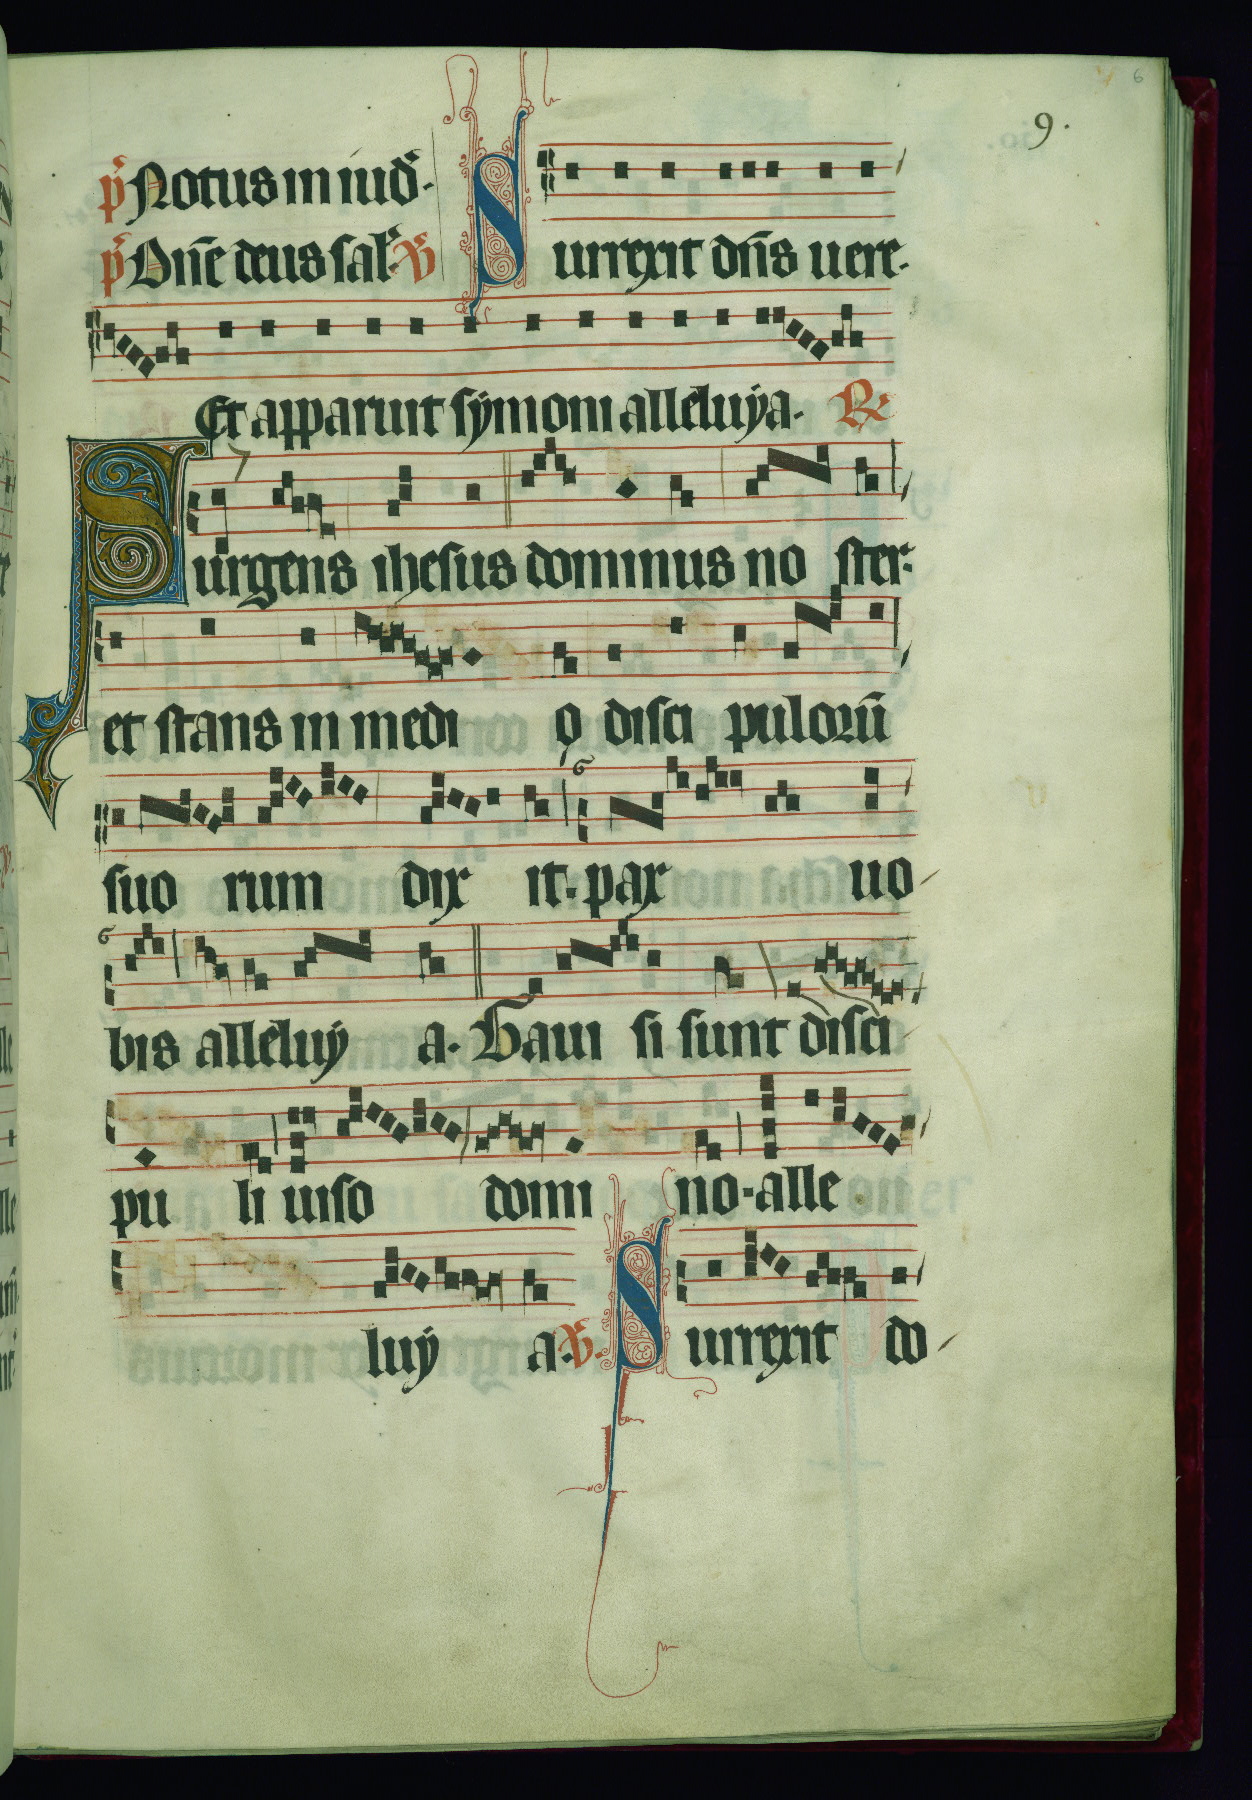 6
9.
p̃ Notus in iud̃.
p̃ Dñe deus sal̃. ℣ Surrexit dñs uere.
Et apparuit sýmoni alleluýa. ℟
Surgens ihesus dominus no ster.
et stans in medi o disci pulorũ
suo rum dix it. pax uo
bis alleluý a. Gaui si sunt disci
pu li uiso domi no. alle
luý a. ℣. Surrexit do